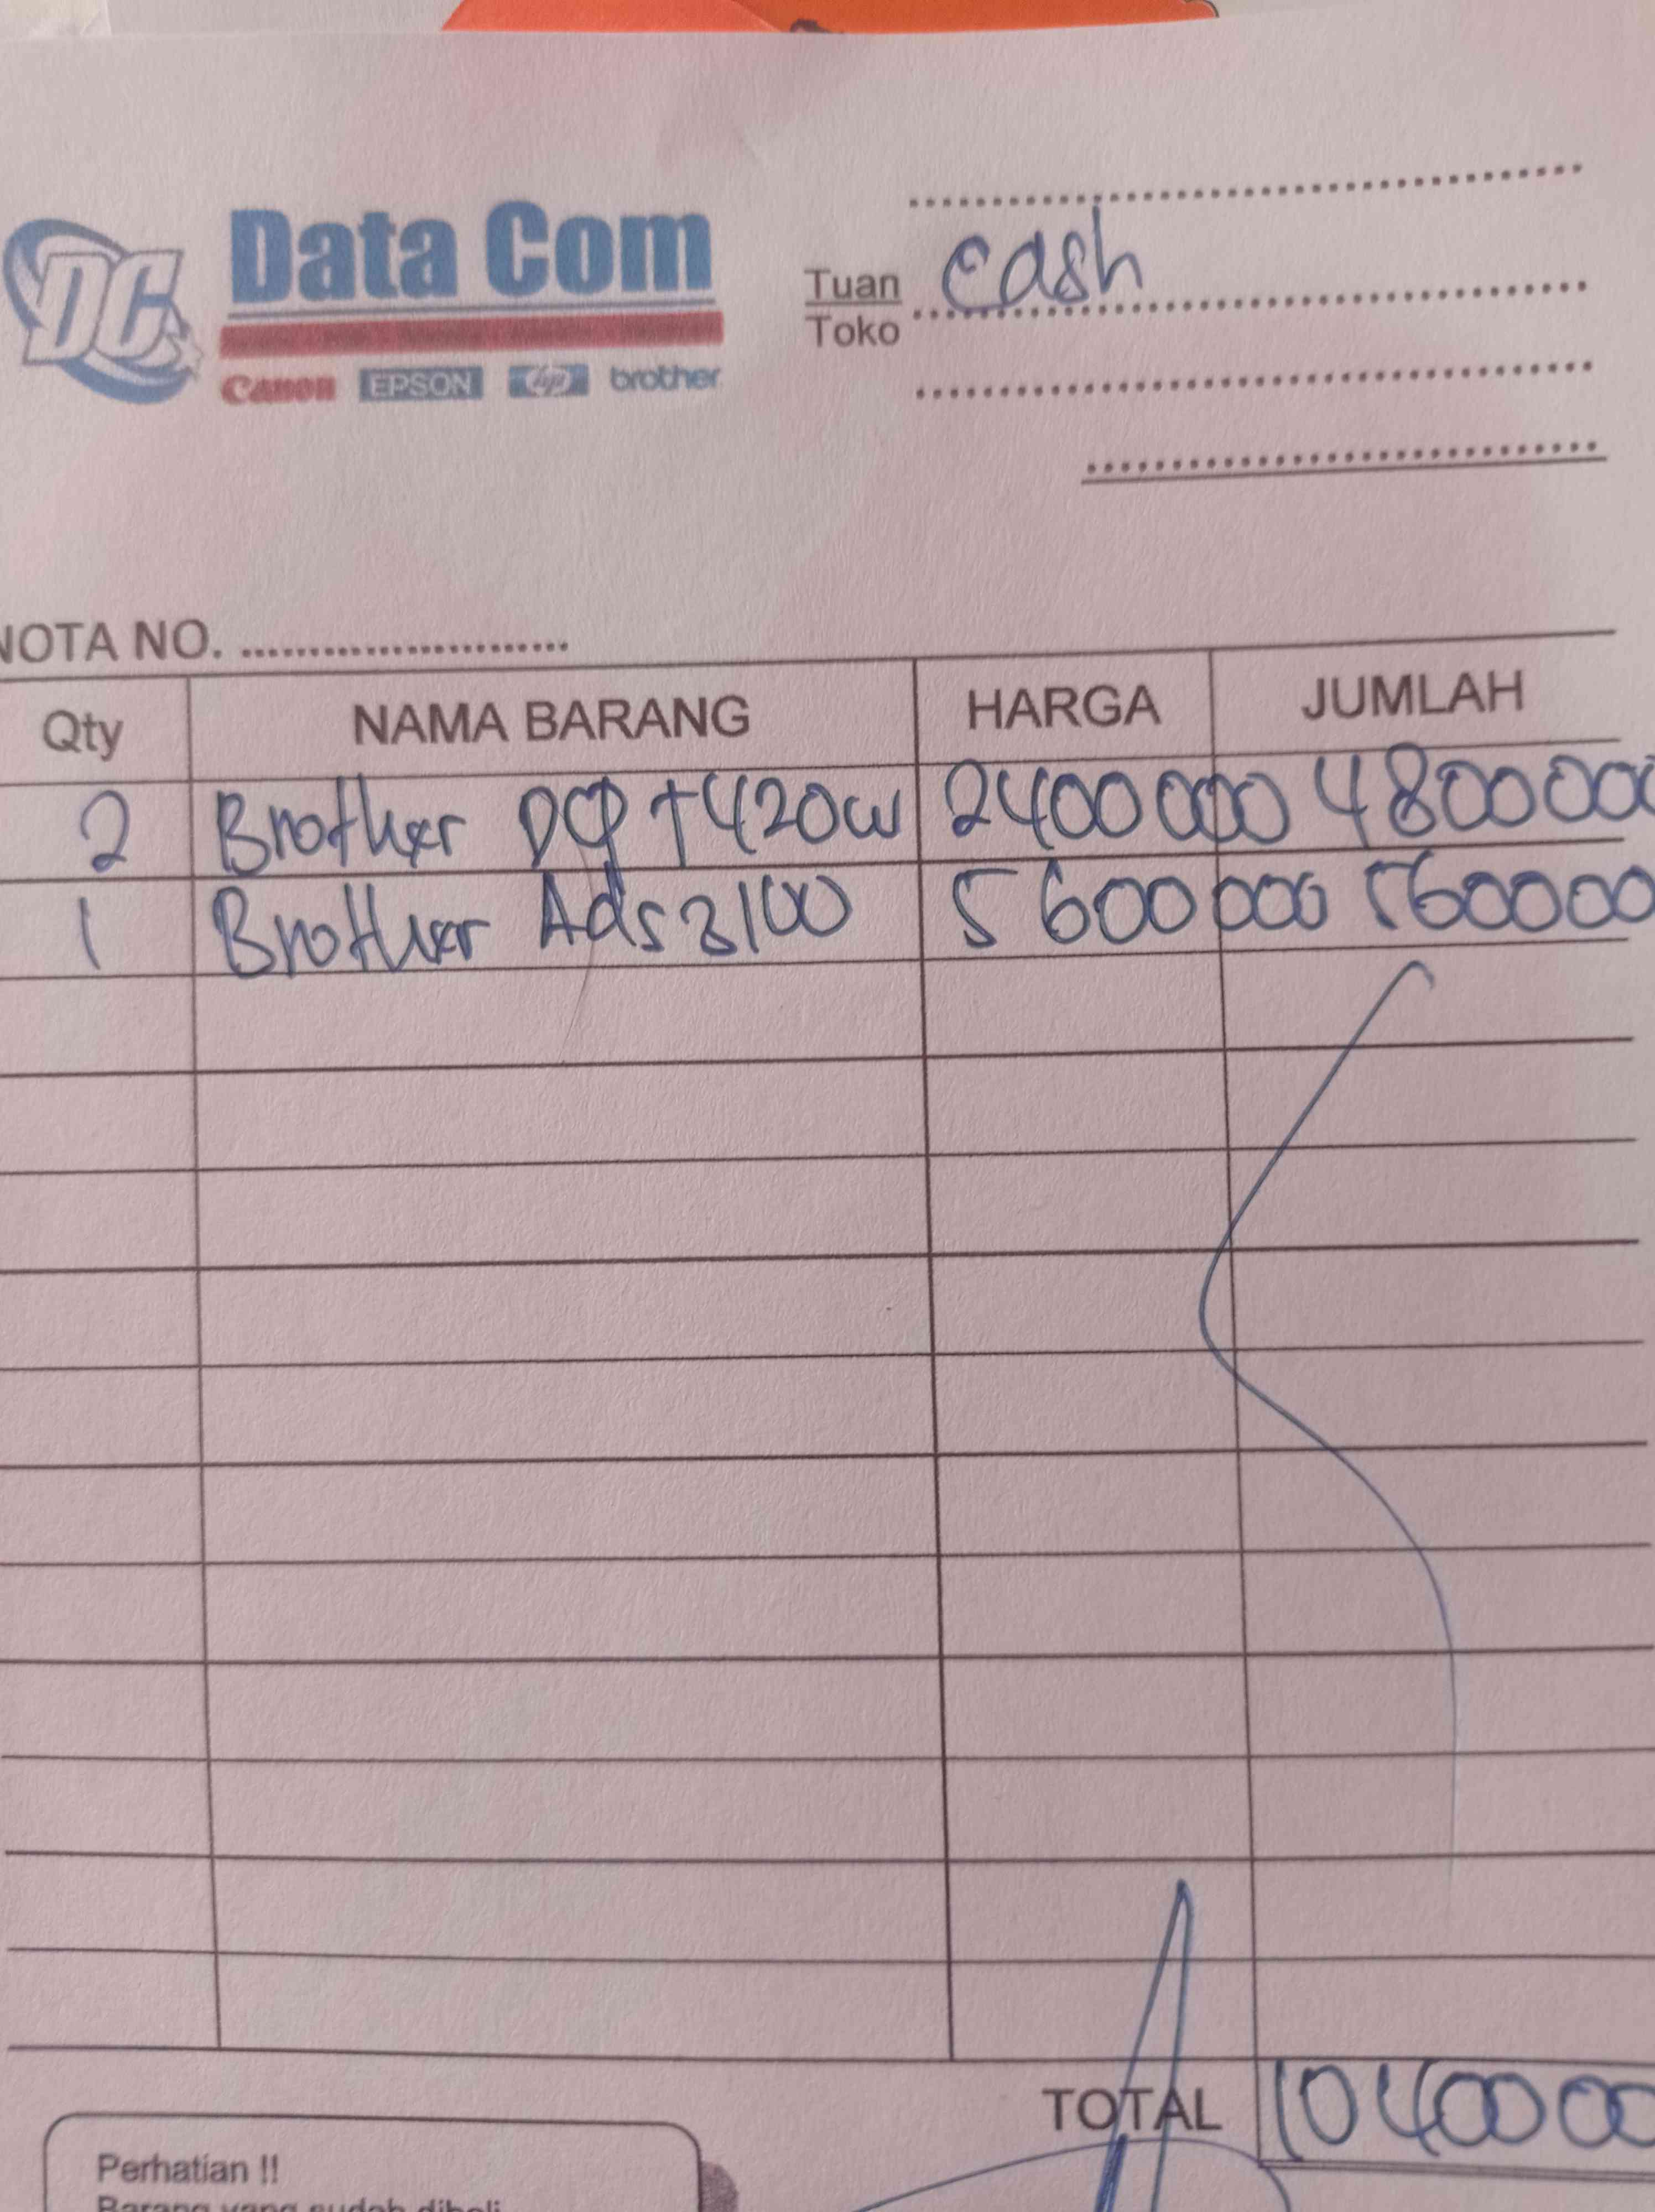 DC Data Com
Canon EPSON hp brother
Tuan cash
Toko
NOTA NO.
Qty NAMA BARANG HARGA JUMLAH
2 Brother DCP T420w 2400000 4800000
1 Brother Ads 3100 5600000 560000
TOTAL 10400000
Perhatian !!
Barang yang sudah dibeli